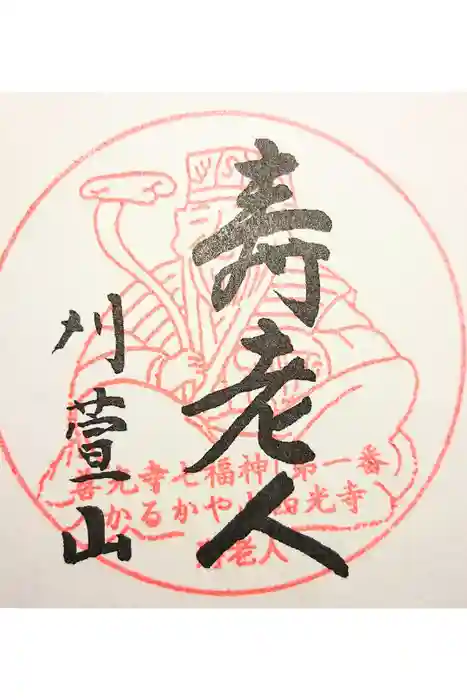 寿老人
刈萱山
善光寺七福神第一番
かるかや山西光寺
寿老人